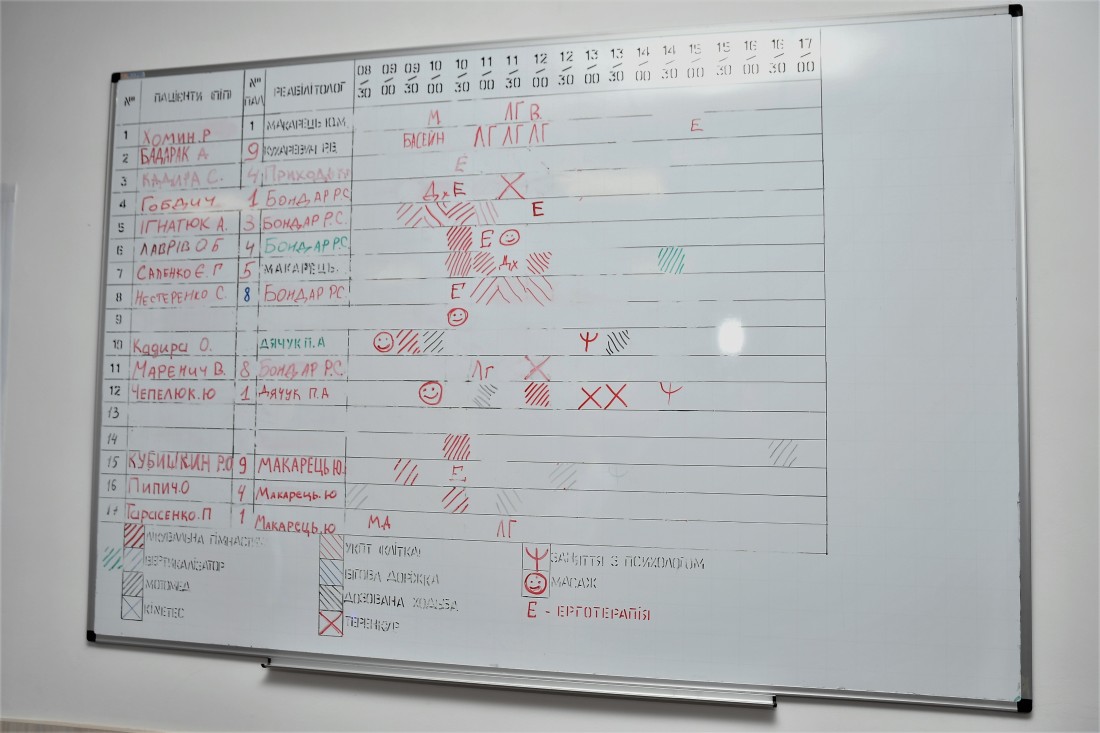 № ПАЦІЄНТИ (ПІП) № ПАЛ РЕАБІЛІТОЛОГ 08/30 09/00 09/30 10/00 10/30 11/00 11/30 12/00 12/30 13/00 13/30 14/00 14/30 15/00 15/30 16/00 16/30 17/00
М ЛГ В.
1 ХОМИН.Р 1 МАКАРЕЦЬ Ю.М. БАСЕЙН ЛГ ЛГ ЛГ Е
2 БАДАРАК А. 9
3 КАДИРА С. 4 Е
4 ГОБДИЧ 1 БОНДАР Р.С. Дх Е
5 ІГНАТЮК А. 3 БОНДАР Р.С. Е
6 ЛАВРІВ О.Б 4 БОНДАР Р.С. Е
7 САЛЕНКО Є.Г 5 МАКАРЕЦЬ. Дх
8 НЕСТЕРЕНКО С. 8 БОНДАР Р.С. Е
9
10 Кадира О. ДЯЧУК П.А Ψ
11 МАРЕНИЧ В. 8 БОНДАР Р.С. Лг
12 ЧЕПЕЛЮК.Ю 1 ДЯЧУК П.А Ψ
13
14
15 КУБИШКИН Р.О 9 МАКАРЕЦЬ Ю. Е
16 ПИПИЧ.О 4 Макарець.Ю
17 Тарасенко.П 1 Макарець.Ю МД ЛГ
ЛІКУВАЛЬНА ГІМНАСТИКА УКПТ (КЛІТКА) Ψ ЗАНЯТТЯ З ПСИХОЛОГОМ
ВЕРТИКАЛІЗАТОР БІГОВА ДОРІЖКА МАСАЖ
МОТОМЕД ДОЗОВАНА ХОДЬБА Е - ЕРГОТЕРАПІЯ
КІНЕТЕС ТЕРЕНКУР